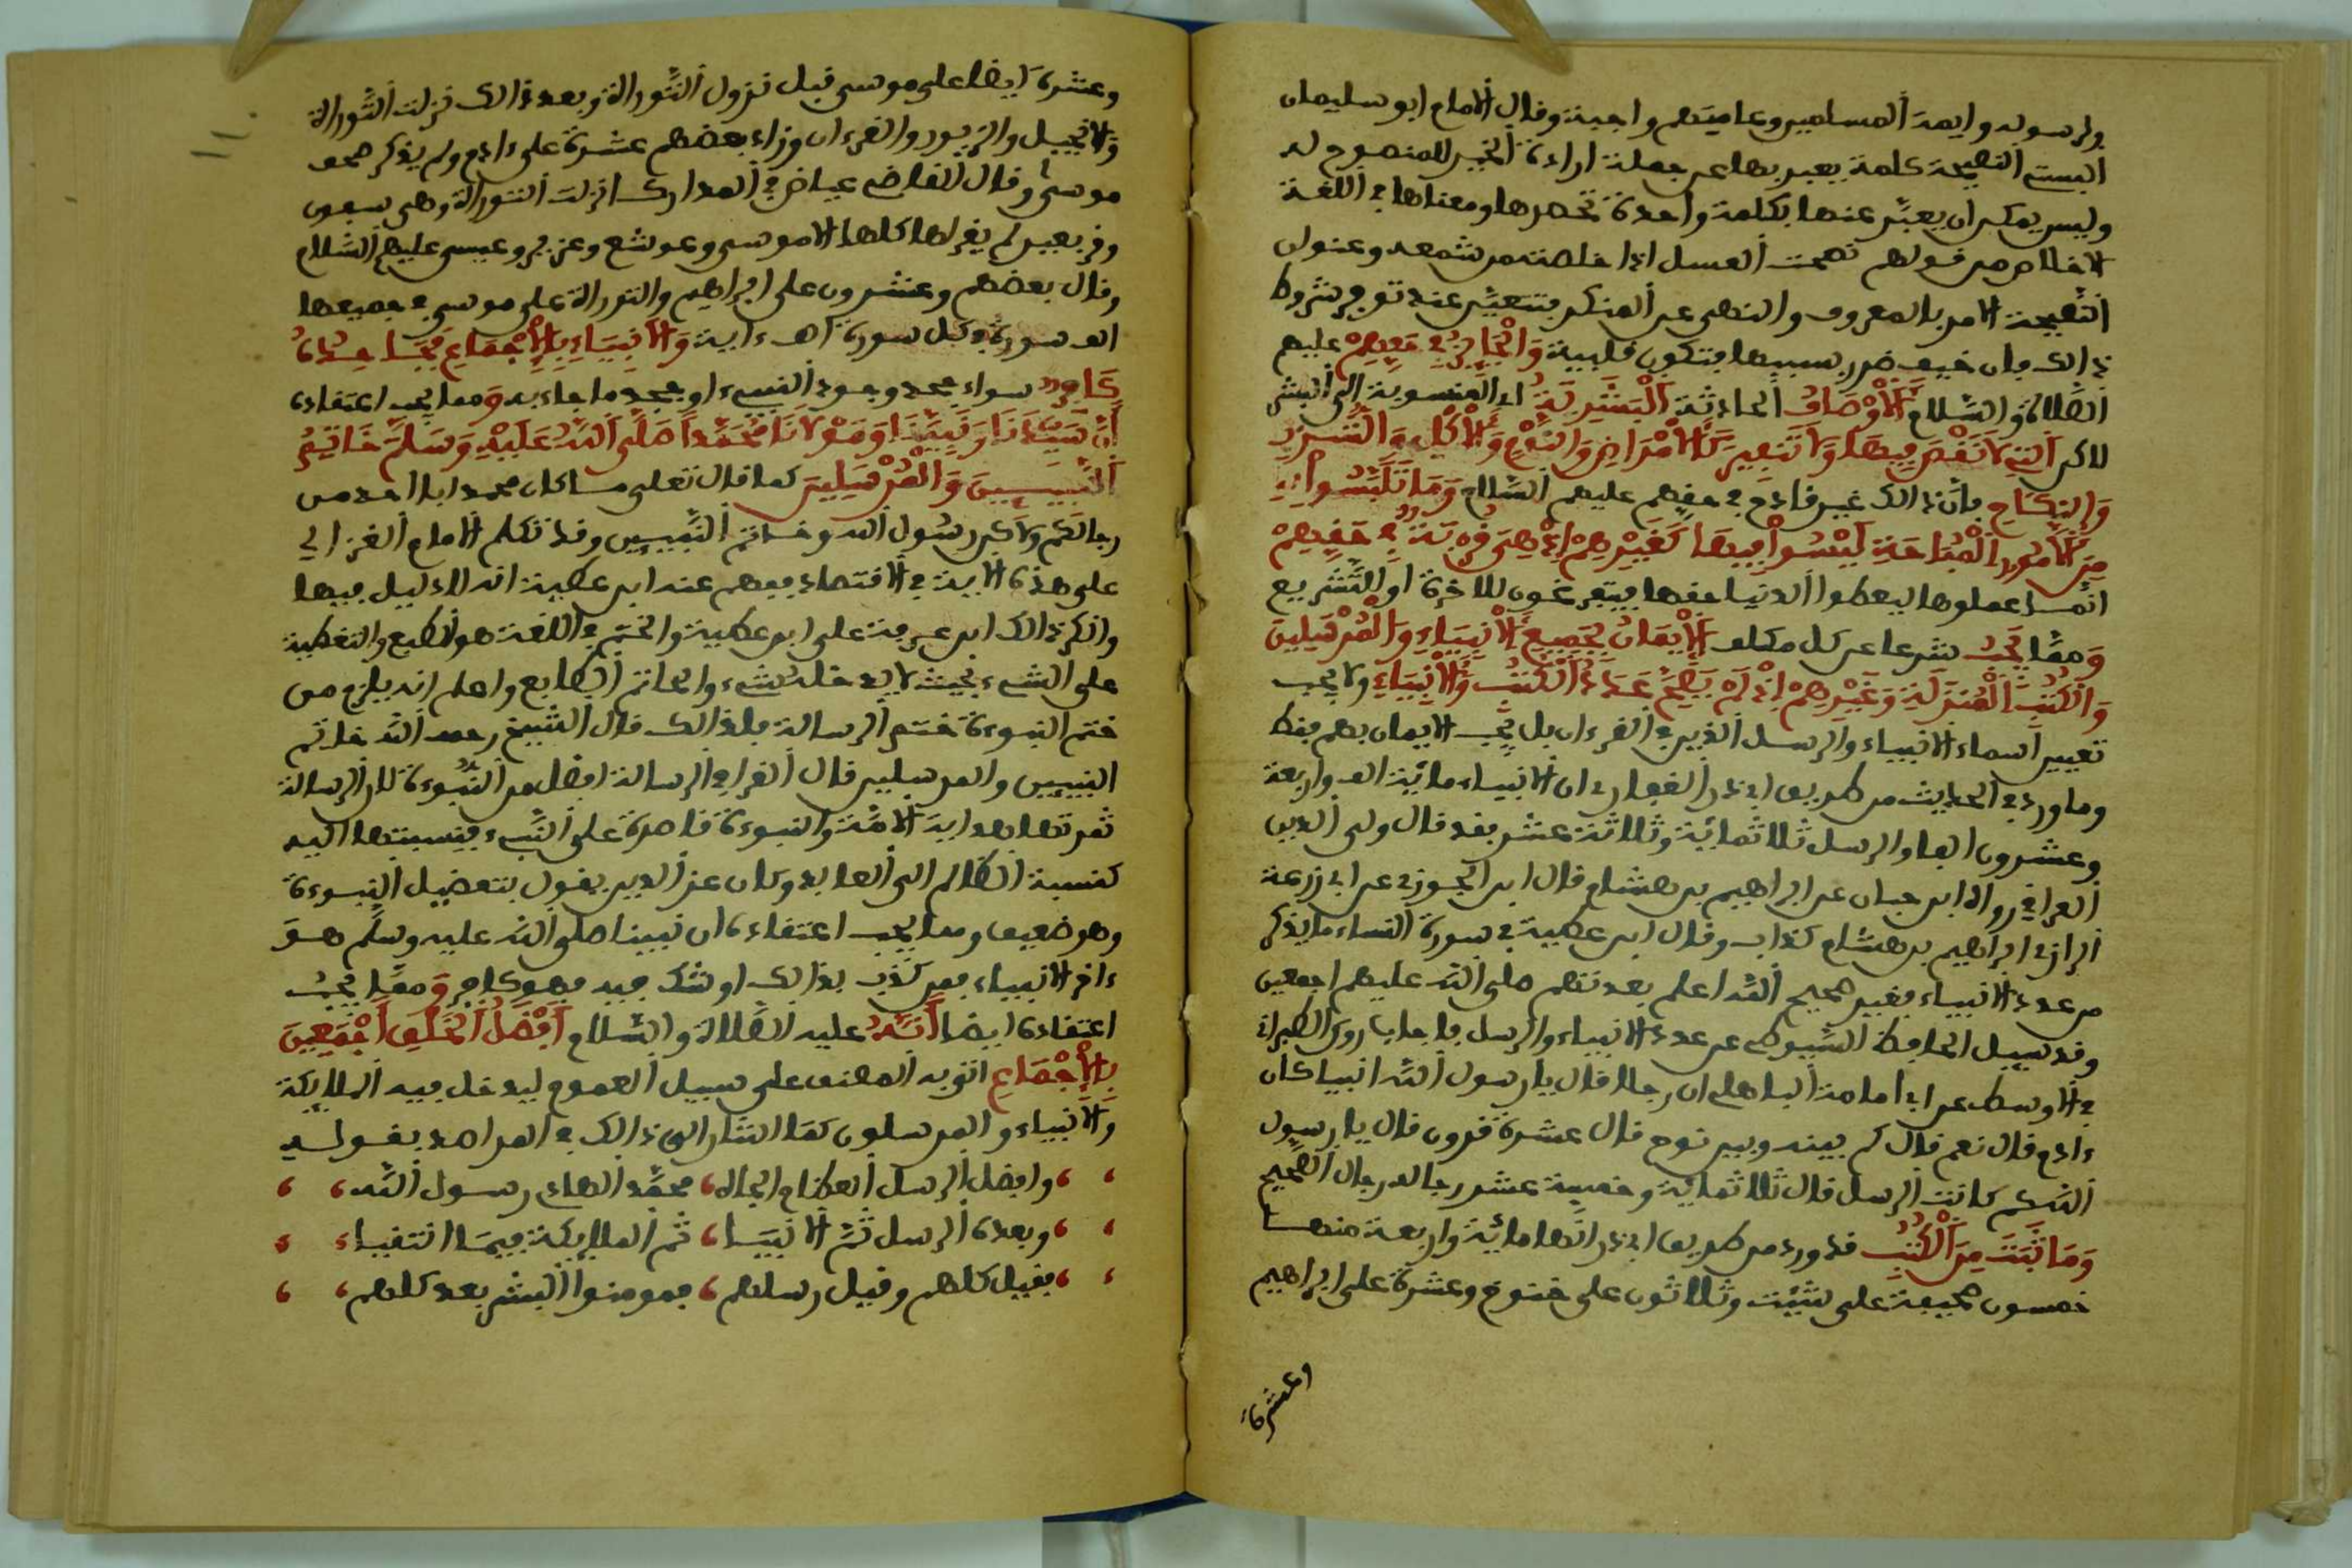 ولرسوله وايمة المسلمين وعاميتهم واجبة وقال الامام ابو سليمان
البستي النصيحة كلمة يعبر بها عن جملة ارادة الخير للمنصوح له
وليس يمكن ان يعبّر عنها بكلمة واحدة تحصرها ومعناها في اللغة
الاخلاص من قولهم نصحت العسل اذا خلصته من شمعه وعنوان
النّصيحة الامر بالمعروف والنهي عن المنكر فتتعيّن عند توفر شروط
ذالك فان خيف ضرر بسببها فتكون قلبية وَالْجَايِزُ فِي حَقِّهِمْ عليهم
الصّلاة والسّلام اَلْأَوْصَافُ الحادثة اَلْبَشَرِيَّةُ اي المنسوبة الى البشر
لاكن اَلتِي لَا نَقْصَ فِيهَا وَلَا تَنْفِيرَ كَالْأَمْرَاضِ وَالنَّوْمِ وَالْأَكْلِ وَالشُّرْبِ
وَالنِّكَاحِ فان ذالك غير قادح في حقهم عليهم السّلام وَمَا تَلَبَّسُوا بِهِ
مِنَ الْأُمُورِ الْمُبَاحَةِ لَيْسُوا فِيهَا كَغَيْرِهِمْ إِذْ هِيَ قُرْبَةٌ فِي حَقِّهِمْ
انّما عملوها ليعطوا الدنيا حقها فيتفرغون للاخرة او للتّشريع
وَمِمَّا يَجِبُ شرعا على كل مكلف اَلْإِيمَانُ بِجَمِيعِ الْأَنْبِيَاءِ وَالْمُرْسَلِينَ
وَالْكُتُبِ الْمُنَزَّلَةِ وَغَيْرِهِمْ إِذْ لَمْ يَصِحَّ عَدَدُ الْكُتُبِ وَالْأَنْبِيَاءِ ولا يجب
تعيين اسماء الانبياء والرسل الذين في القرءان بل يجب الايمان بهم فقط
وما ورد في الحديث من طريق ابي ذر الغفاري ان الانبياء مائة الف واربعة
وعشرون الفا والرسل ثلاثمائة وثلاثة عشر فقد قال ولي الدين
العراقي رواه ابن حبان عن ابراهيم بن هشام قال ابن الجوزي عن ابي زرعة
الرازي ابراهيم بن هشام كذاب وقال ابن عطية في سورة النساء ما يذكر
من عدد الانبياء فغير صحيح الله اعلم بعدتهم صلى الله عليهم اجمعين
وقد سيل الحافظ السّيوطي عن عدد الانبياء والرسل فاجاب روى الطبراني
في الاوسط عن ابي امامة الباهلي ان رجلا قال يا رسول الله انبيا كان
ءادم قال نعم قال كم بينه وبين نوح قال عشرة قرون قال يا رسول
الله كم كانت الرسل قال ثلاثمائة وخمسة عشر رجاله رجال الصحيح
وَمَا ثَبَتَ مِنَ الْكُتُبِ قد ورد من طريق ابي ذر انها مائة واربعة منها
خمسون صحيفة على شيت وثلاثون على خنوخ وعشرة على ابراهيم
وعشرة
وعشرة ايضا على موسى قبل نزول التّوراة وبعد ذالك نزلت التّوراة
والانجيل والزبور والقرءان وزاد بعضهم عشرة على ءادم ولم يذكر صحف
موسى وقال القاضي عياض في المدارك انزلت التوراة وهي سبعون
وقر بعير لم يقرأها كلها الا موسى ويوشع وعزير وعيسى عليهم السّلام
وقال بعضهم وعشرون على ابراهيم والتوراة على موسى في جميعها
الف سورة وكل سورة الف ءاية وَالْأَنْبِيَاءِ بِالْإِجْمَاعِ فَجَاحِدُهُ
كَافِرٌ سواء جحد وجود النبيء او جحد ما جاء به وَمما يجب اعتقاده
أَنَّ سَيِّدَنَا وَنَبِيَّنَا وَمَوْلَانَا مُحَمَّداً صَلَّى اللَّهُ عَلَيْهِ وَسَلَّمَ خَاتِمُ
النَّبِيِّينَ وَالْمُرْسَلِينَ كما قال تعلى ما كان محمد ابا احد من
رجالكم ولاكن رسول الله وخاتم النّبيين وقد تكلم الامام الغزالي
على هذه الاية في الاقتصاد ففهم عنه ابن عطية انه لا دليل فيها
وانكر ذالك ابن عرفة على ابن عطية والختم في اللغة هو الطبع والتغطية
على الشيء بحيث لا يدخله شيء والخاتم الطابع واعلم انه يلزم من
ختم النبوءة ختم الرسالة فلذالك قال الشّيخ رحمه الله خاتم
النبيين والمرسلين قال القرافي الرسالة افضل من النّبوءة لان الرسالة
ثمرتها هداية الامّة والنبوءة قاصرة على النّبيء فنسبتها اليه
كنسبة العالم الى العابد وكان عز الدين يقول بتفضيل النبوءة
وهو ضعيف ومما يجب اعتقاده ان نبينا صلى الله عليه وسلّم هو
ءاخر الانبياء فمن كذّب بذالك او شك فيه فهو كافر وَممّا يجبُ
اعتقاده ايضا أَنَّهُ عليه الصّلاة والسّلام أَفْضَلُ الْخَلْقِ أَجْمَعِينَ
بِالْإِجْمَاعِ اتى به المصنف على سبيل العموم ليدخل فيه الملايكة
والانبياء والمرسلون كما اشار الى ذالك في المراصد بقوله
وافضل الرسل العظام الجاه، محمّد الهادي رسول الله
وبعده الرسل ثمّ الانبيا، ثم الملايكة فيما انتقيا
فقيل كلهم وقيل رسلهم، فمومنوا البشر بعد كلهم